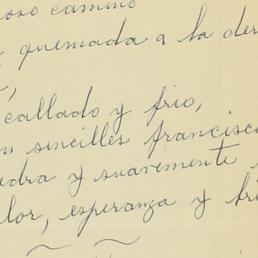 oso camino
quemada a la der
callado y frio,
sincilles francisca
edra y suavemente
lor, esperanza y fri